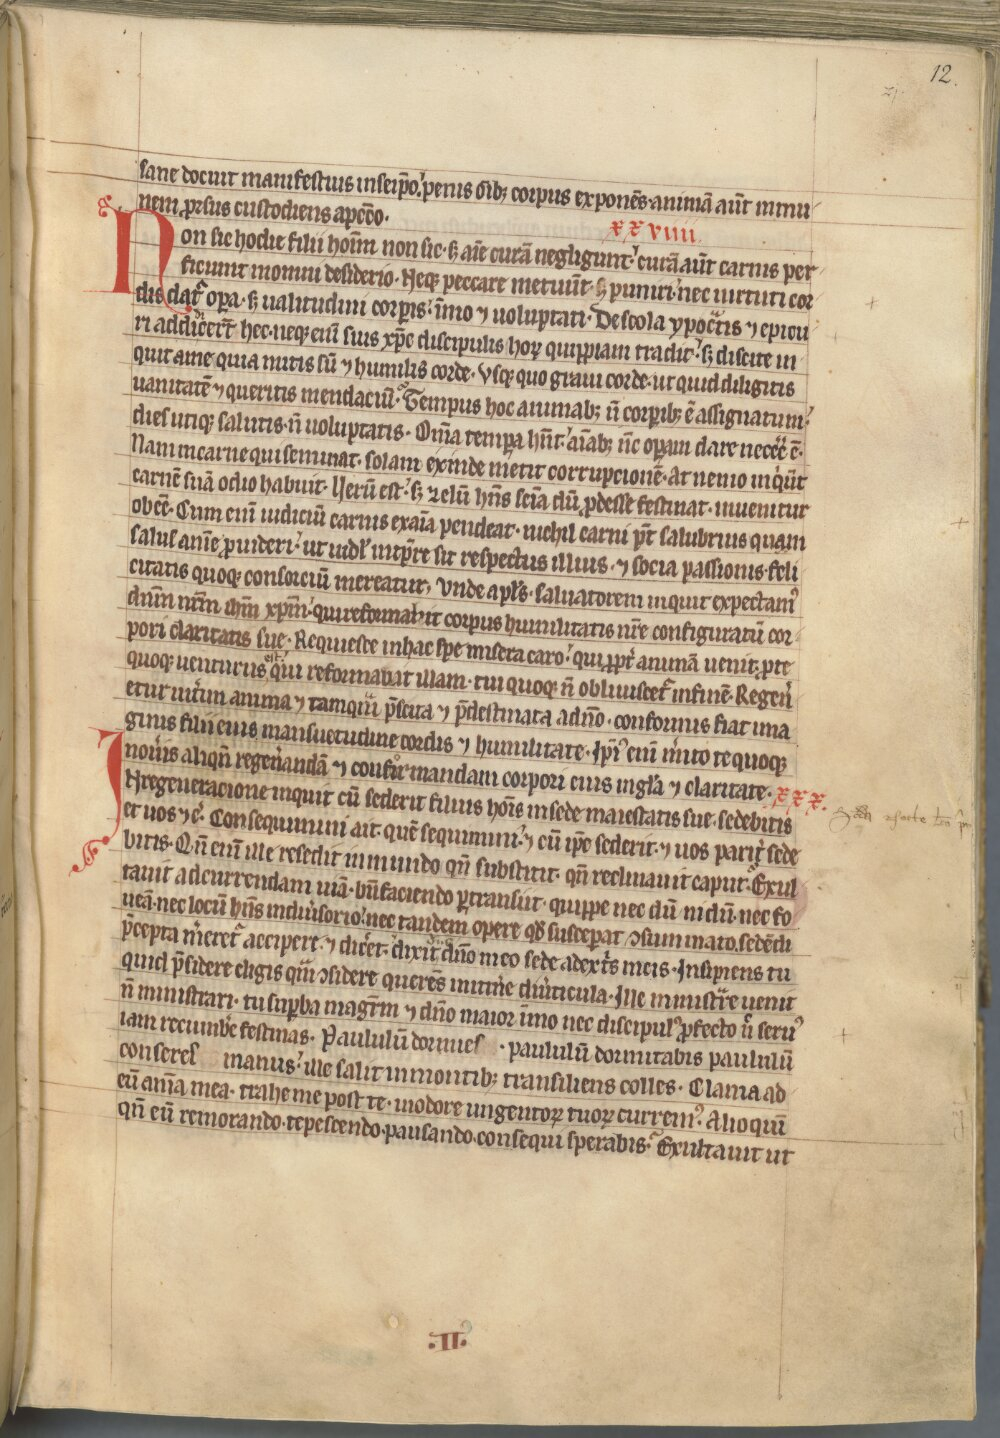 12.
sane docuit manifestius in seip̄o. penis q̇ibꝫ corpus exponēs animā aūt inmu
nem ꝓrsus custodiens a pcc̄o.
xxviiii
Non sic hodie filii hoīm non sic. sꝫ aīe curā negligunt. curā aūt carnis per
ficiunt in omni desiderio. Neqꝫ peccare metuūt sꝫ puniri. nec uirtuti cor
dis dat̄ opa. sꝫ ualitudini corpis. īmo ⁊ uoluptati. De scola ypoc̄tis ⁊ epicu
ri addic̄ert̄ hec. neqꝫ enī suis xp̄c discipulis hoꝝ quippiam tradit. sꝫ discite in
quit a me quia mitis sū ⁊ humilis corde. Vsqꝫ quo graui corde. ut quid diligitis
uanitatē ⁊ queritis mendaciū. Tempus hoc animabꝫ n̄ corpibꝫ ē assignatum.
dies utiqꝫ salutis. n̄ uoluptatis. Om̄a tempa hn̄t. aīabꝫ nc̄ opam dare necē̄ ē.
Nam in carne qui seminat. solam exinde metit corrupcionē. At nemo inq̇ūt
carnē suā odio habuit. Uerū est. sꝫ zelū hn̄s sciā dū ꝓdesse festinat. inuenitur
obeē. Cum enī iudiciū carnis ex aīa pendeat. nichil carni pt̄ salubrius quam
salus anīe ꝓuideri. ut uidl̄ in tp̄re sit respectus illius. ⁊ socia passionis. feli
citatis quoqꝫ consorciū mereatur, Vnde apl̄s. saluatorem inquit expectamꝰ
dn̄m nr̄m ihm̄ xpm̄. qui reformabit corpus humilitatis nr̄e configuratū cor
pori claritatis sue. Requiesce in hac spe misera caro. qui ꝓpt̄ animā uenit. ꝓ te
quoqꝫ uenturus est. qui reformabat illam. tui quoqꝫ n̄ obliuiscet̄ in finē. Regen̄
etur int̄im anima ⁊ tamquā p̄scita ⁊ p̄destinata a dn̄o. conformis fiat ima
ginis filii eius mansuetudine cordis ⁊ humilitate. Ipiꝰ enī m̄ito te quoqꝫ
noūis aliqn̄ regen̄andā ⁊ confor̄mandam corpori eius in gl̄a ⁊ claritate. xxx.
In regeneracione inquit cū sederit filius hoīs in sede maiestatis sue. sedebitis
et uos ⁊ c̄. Consequimini ait. quē sequimini. ⁊ cū ip̄e sederit. ⁊ uos parit̄ sede
bitis. Qn̄ enī ille resedit in mundo qn̄ substitit. qn̄ reclinauit caput. Exul
tauit ad currendam uiā. bn̄faciendo ptransiit. quippe nec dū nidū. nec fo
ueā. nec locū hn̄s in diūsorio. nec tandem opere qd̄ suscepat ꝯsummato. sedēdi
p̄cepta m̄eret̄ accipere. ⁊ dicēt. dixit dn̄s dn̄o meo sede a dext̄s meis. Insipiens tu
quid p̄sidere eligis quī ꝯsidere querēs intrn̄e diūticula. Ille ministr̄e uenit
n̄ ministrari. tu supba magr̄m ⁊ dn̄o maior īmo nec discipulꝰ ꝓfecto n̄ seruꝰ
iam recumbe festinas. Paululū dormies . paululū dormitabis paululū
conseres manus. ille salit in montibꝫ transiliens colles. Clama ad
eū anīa mea. trahe me post te. in odore ungentoꝝ tuoꝝ curremꝰ. Alioquī
qn̄ eū remorando. tepescendo. pausando. consequi sperabis. Exultauit ut
.II.